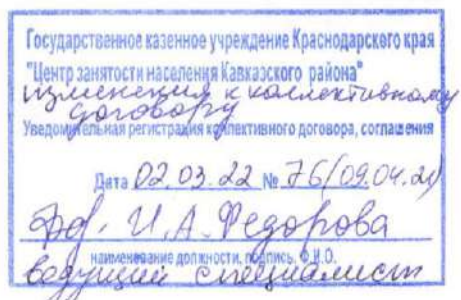 Государственное казенное учреждение Краснодарского края
"Центр занятости населения Кавказского района"
изменения к коллективному
договору
Уведомительная регистрация коллективного договора, соглашения
Дата 02.03.22 № 76(09.04.21)
И.А. Федорова
наименование должности, подпись, Ф.И.О.
ведущий специалист